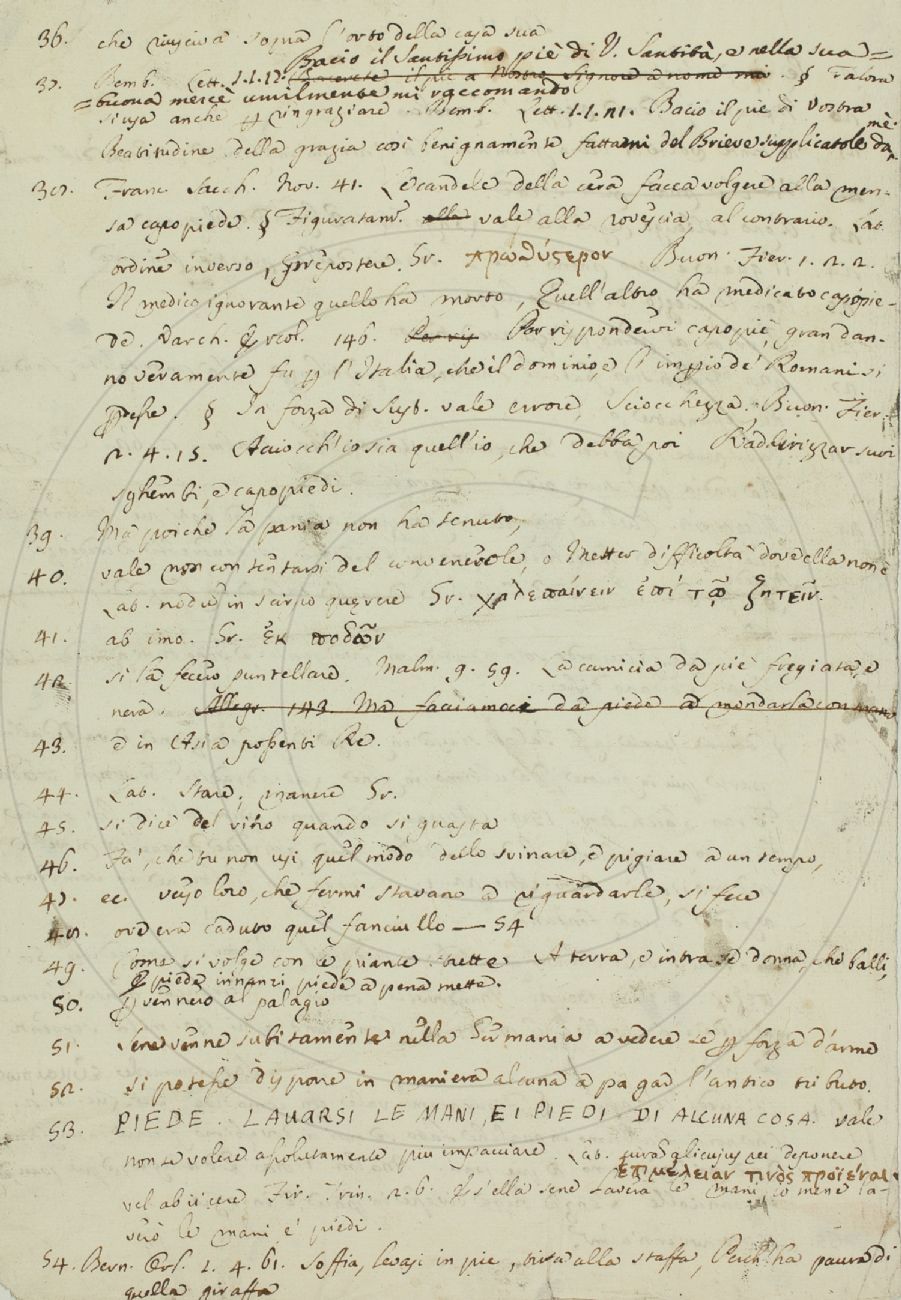 36. che riusciva sopra l'orto della casa sua
Bacio il Santissimo piè di V. Santità, e nella sua =
37. Bemb. Lett. 1.1.12. § Talora
= buona mercè umilmente mi raccomando
si usa anche ꝑ ringraziare. Bemb. Lett. 1.1.11. Bacio il piè di Vostra
Beatitudine della grazia così benignamente fattami del Brieve supplicatole da mè.
38. Franc. Sacch. Nov. 41. Le candele della cera facea volgere alla men-
sa capopiede. § Figuratam. alla vale alla rovescia, al contrario. Lat.
ordine inverso, præpostere. Gr. πρωθύστερον Buon. Fier. 1. 2. 2.
Il medico ignorante quello ha morto, Quell'altro ha medicato capopie-
de. Varch. Ercol. 146. Per ris Per rispondervi capopiè, gran dan-
no veramente fu ꝑ l'Italia, che il dominio, e l'impio de' Romani si
ꝑdesse. § In forza di Sust. vale errore, Sciocchezza. Buon. Fier.
2. 4. 15. Acciocch'io sia quell'io, che debba poi Raddirizzar suoi
sghembi, e capopiedi.
39. Ma poichè la pania non ha tenuto,
40. vale non contentarsi del convenevole, o Metter difficoltà dove ella non è
Lat. nodum in scirpo quærere Gr. χαλεπαίνειν ἐπί τῷ ζητεῖν.
41. ab imo. Gr. ἐκ ποδῶν
42. si la fecero puntellare. Malm. 9. 59. La camicia da piè fregiata, e
nera. Allegr. 143 Ma facciamoci da piede a mondarla con mano
43. e in Asia possenti Re.
44. Lat. stare, manere Gr.
45. si dice del vino quando si guasta
46. Fa', che tu non usi quel modo dello svinare, e pigiare a un tempo,
47. ec. verso loro, che fermi stavano a riguardarle, si fece
48. ove era caduto quel fanciullo — 54
49. Come si volge con le piante strette A terra, e intra sè donna, che balli,
E piede innanzi piede a pena mette.
50. ꝑvennero al palagio
51. Sene venne subitamente nella Germania a vedere se ꝑ forza d'arme
52. si potesse disporre in maniera alcuna a pagar l'antico tributo.
53. PIEDE. LAVARSI LE MANI, E I PIEDI DI ALCUNA COSA. vale
non se volere assolutamente più impacciare. Lat. curā alicujus rei deponere
ἐπιμέλειαν τινὸς προϊέναι.
vel abiicere Fir. Trin. 2. 6. E s'ella sene laverà le mani, io mene la-
verò le mani, e' piedi.
54. Bern. Orl. 1. 4. 61. Soffia, levasi in piè, tira alla staffa, Perch'ha paura di
quella giraffa